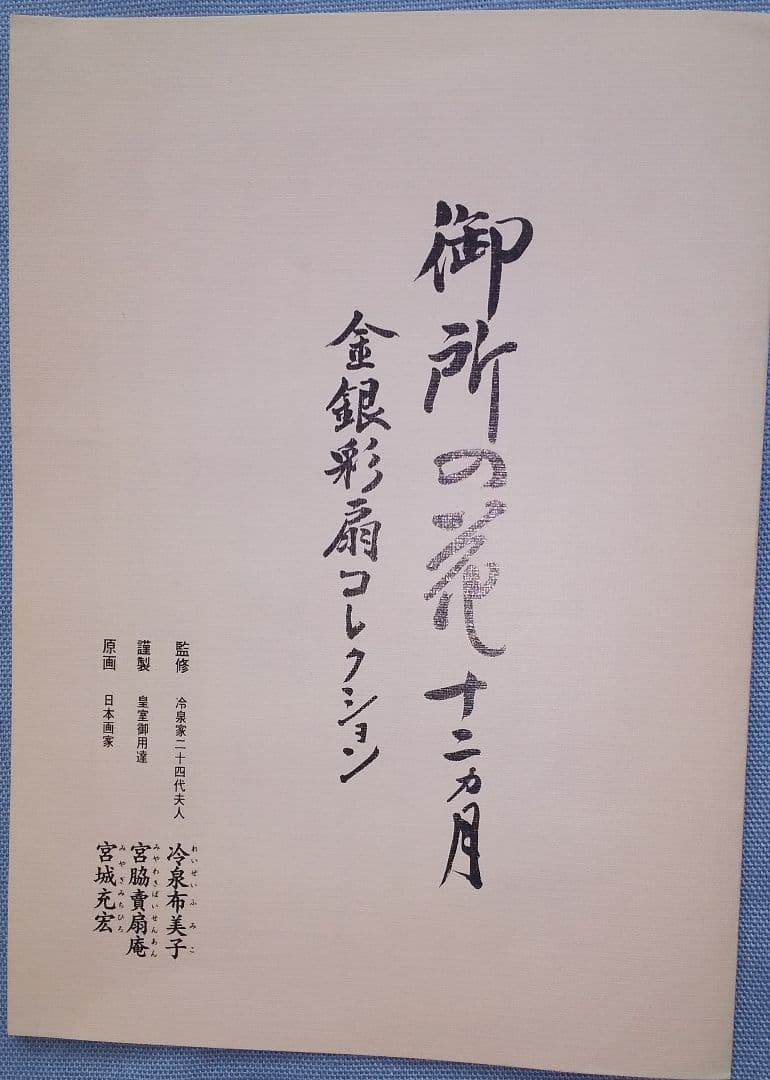 御所の花十二ヵ月
金銀彩扇コレクション
監修 冷泉家二十四代夫人 冷泉布美子
れいぜいふみこ
謹製 皇室御用達 宮脇賣扇庵
みやわきばいせんあん
原画 日本画家 宮城充宏
みやぎみちひろ